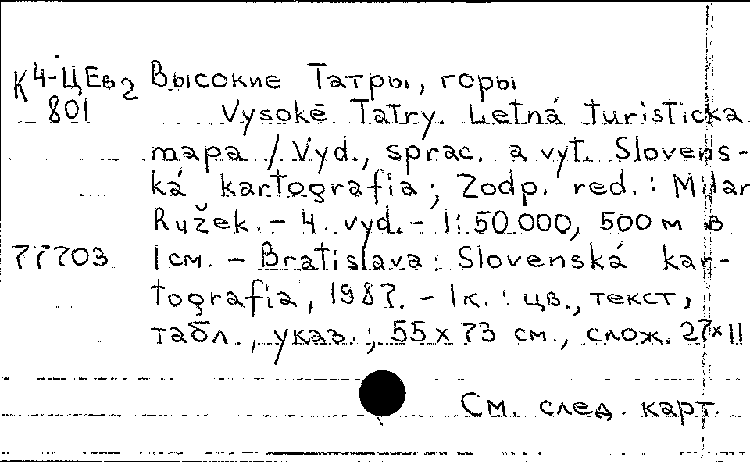 К4-ЦЕв2 Высокие Татры, горы
801 Vysoké Tatry. Letná turistická
mapa / Vyd., sprac. a vyt. Slovens-
ká kartografia; Zodp. red.: Milan
Ružek. - 4. vyd. - 1:50.000, 500 м в
77703 1 см. - Bratislava: Slovenská kar-
tografia, 1987. - 1 к.: цв., текст,
табл., указ.; 55 x 73 см., слож. 27x11
См. след. карт.